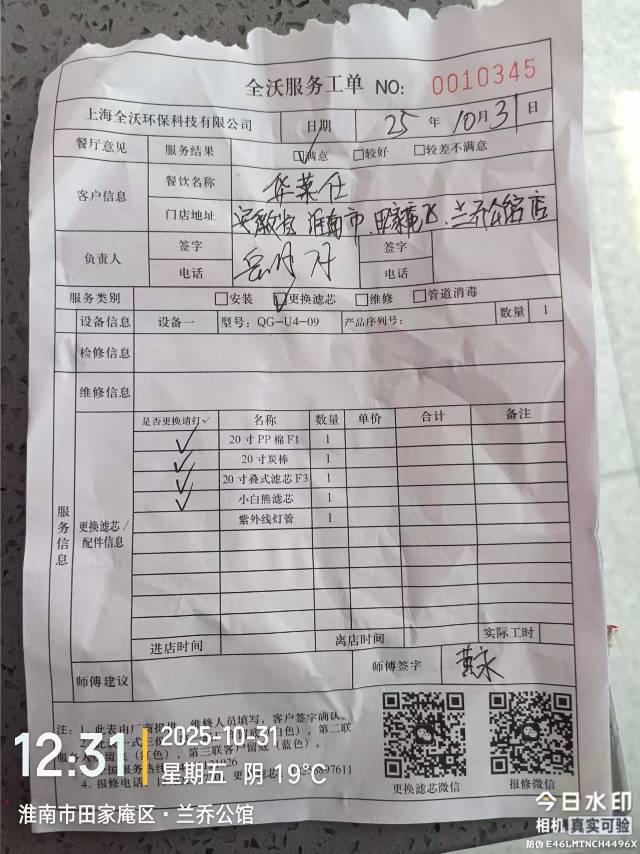 全沃服务工单 NO: 0010345
上海全沃环保科技有限公司 日期 25 年 10 月 31 日
餐厅意见 服务结果 ☑满意 □较好 □较差不满意
客户信息 餐饮名称 华莱仕
门店地址 安徽省.淮南市.田家庵区.兰乔公馆店
负责人 签字 签字
电话 电话
服务类别 □安装 ☑更换滤芯 □维修 □管道消毒
设备信息 设备一 型号: QG-U4-09 产品序列号: 数量 1
检修信息
维修信息
服务信息
更换滤芯/
配件信息
是否更换请打✓ 名称 数量 单价 合计 备注
✓ 20寸PP棉F1 1
✓ 20寸炭棒 1
✓ 20寸叠式滤芯F3 1
✓ 小白熊滤芯 1
紫外线灯管 1
进店时间 离店时间 实际工时
师傅建议 师傅签字 黄永
注: 1. 此表由厂商提供, 维修人员填写, 客户签字确认。
第二联
(红色), 第三联客户留底 (蓝色)。
4. 报修电话:
更换滤芯微信 报修微信
12:31 2025-10-31
星期五 阴 19°C
淮南市田家庵区·兰乔公馆
今日水印
相机 真实可验
防伪 E46LMTNCH4496X